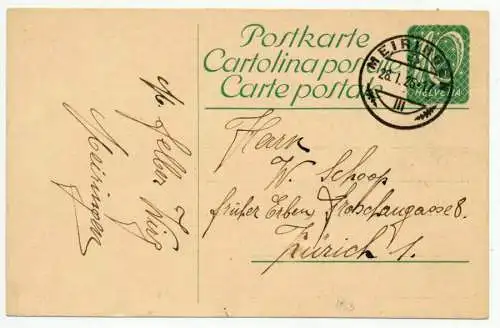 Postkarte
Cartolina postale
Carte postale
10
HELVETIA
MEIRINGEN
28.I.26
III
Herrn
W. Schoop
früher Erben, Froschaugasse 8.
Zürich 1.
Meiringen